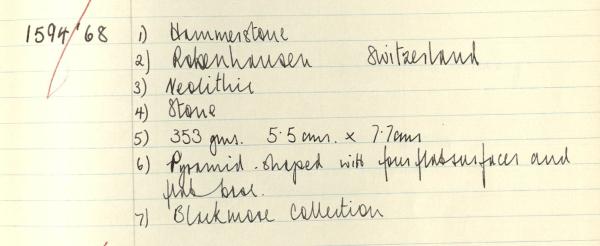 1594/'68 1) Hammerstone
2) Robenhausen Switzerland
3) Neolithic
4) Stone
5) 353 gms. 5.5 cms. x 7.7cms
6) Pyramid-shaped with four flat surfaces and
flat base.
7) Blackmore Collection